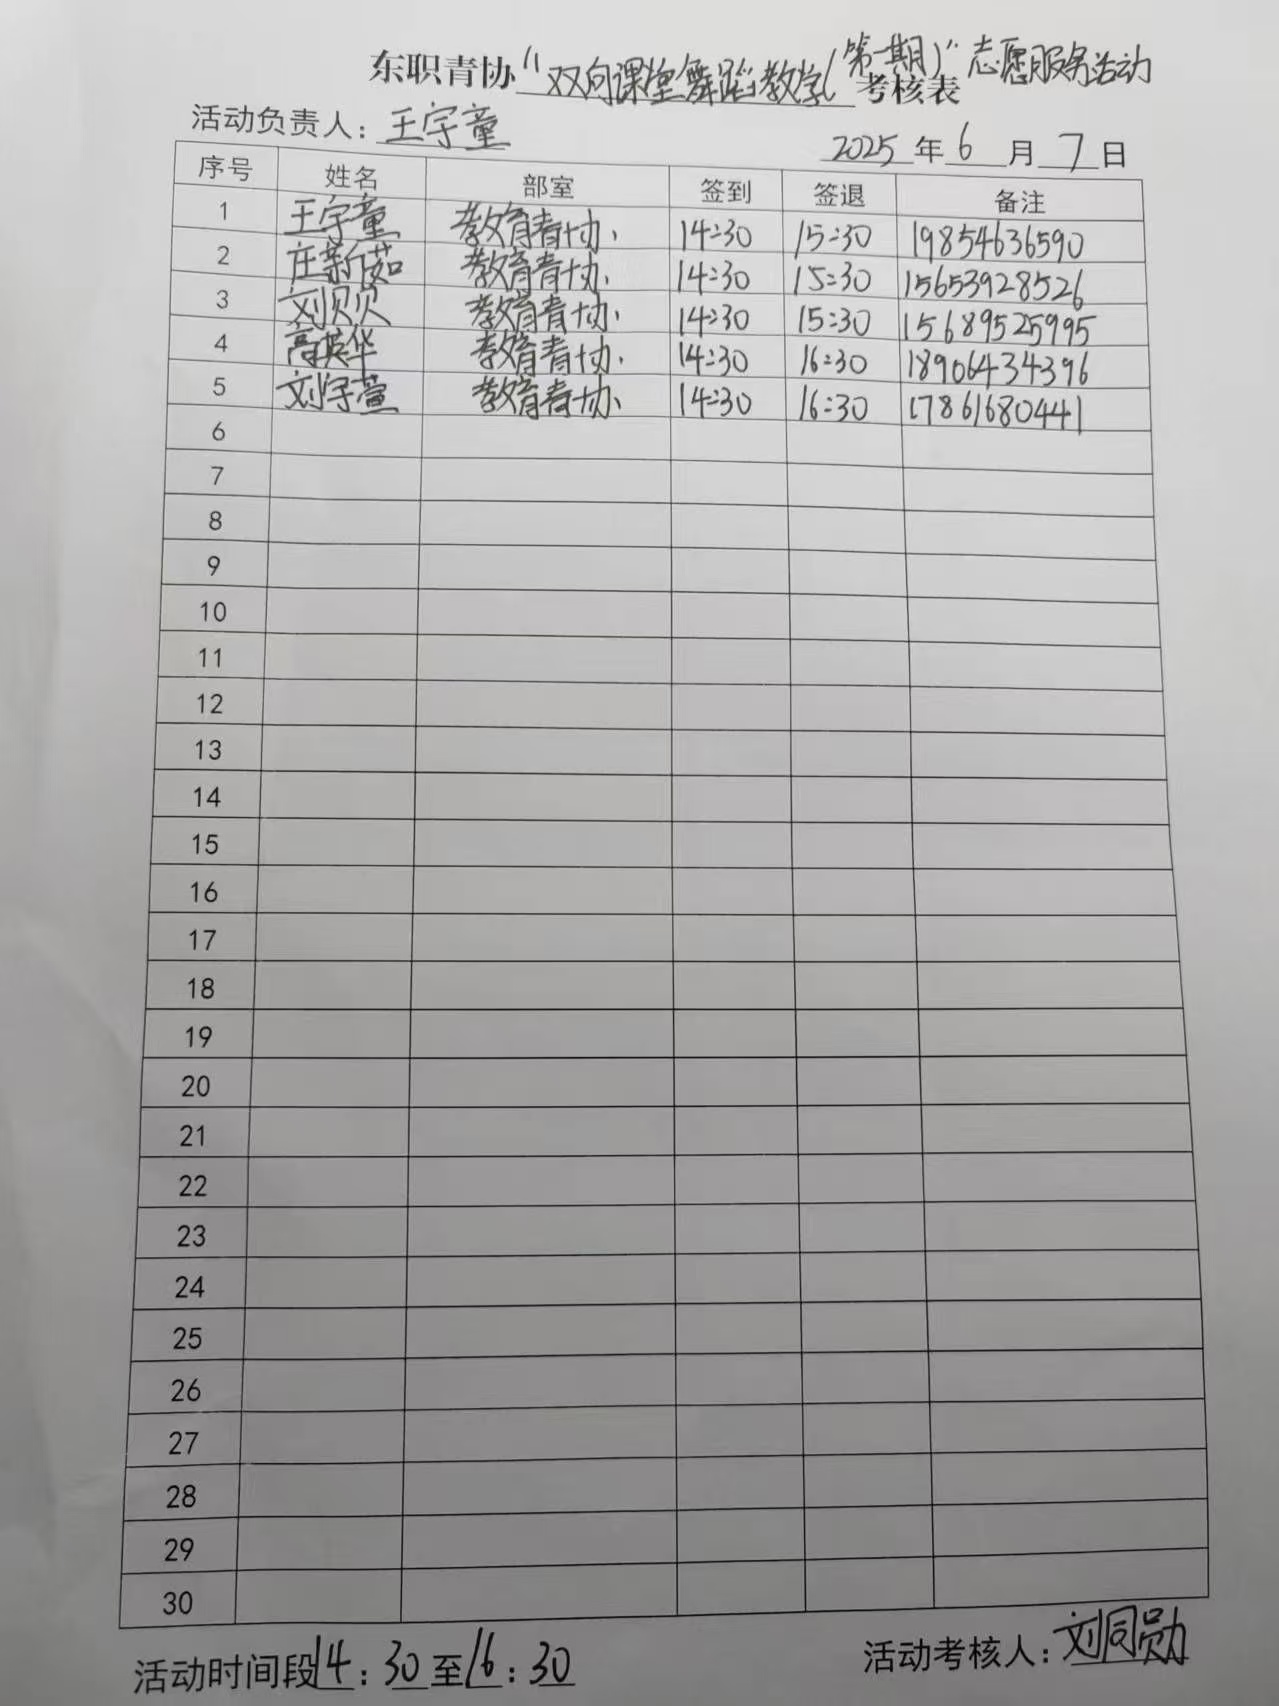 东职青协“双向课堂舞蹈教学(第一期)”志愿服务活动考核表
活动负责人：王宇童 2025年6月7日
序号 姓名 部室 签到 签退 备注
1 王宇童 教育青协 14:30 15:30 19854636590
2 庄新茹 教育青协 14:30 15:30 15653928526
3 刘贝贝 教育青协 14:30 15:30 15689525995
4 高英华 教育青协 14:30 16:30 18906434396
5 刘宇萱 教育青协 14:30 16:30 17861680441
6
7
8
9
10
11
12
13
14
15
16
17
18
19
20
21
22
23
24
25
26
27
28
29
30
活动时间段14:30至16:30 活动考核人：刘同勋